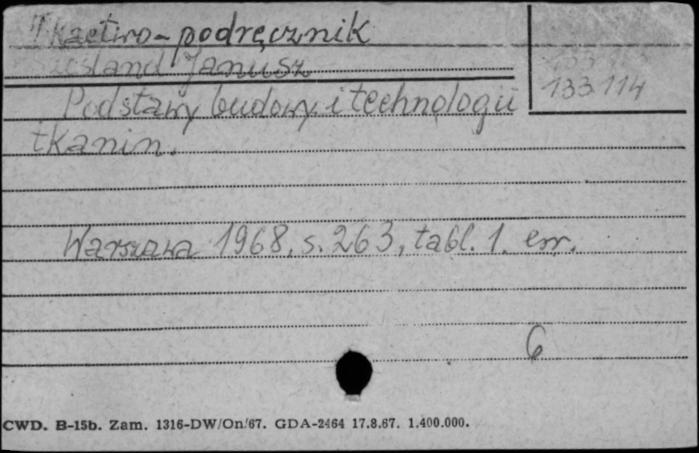 Tkactwo - podręcznik
Janusz
133.114
Podstawy budowy i technologii
tkanin.
Warszawa 1968, s. 263, tabl. 1. err.
6
CWD. B-15b. Zam. 1316-DW/On/67. GDA-2464 17.8.67. 1.400.000.